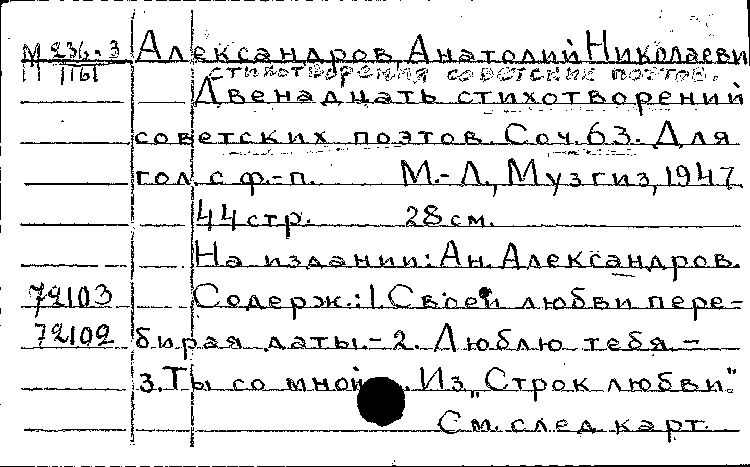 М 236-3 Александров Анатолий Николаеви
М 1161 стихотворения советских поэтов.
Двенадцать стихотворений
советских поэтов. Соч. 63. Для
гол. с ф.-п. М.-Л., Музгиз, 1947
44 стр. 28 см.
На издании: Ан. Александров.
72103 Содерж.: 1. Своей любви пере-
72102 бирая даты.- 2. Люблю тебя.-
3. Ты со мной. Из „Строк любви".
См. след. карт.